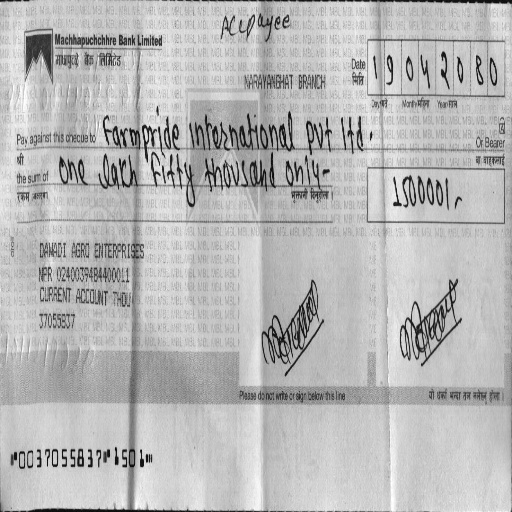 A/C payee
Machhapuchchhre Bank Limited
माछापुच्छ्रे बैंक लिमिटेड
NARAYANGHAT BRANCH
Date
मिति
1 9 0 4 2 0 8 0
Day/गते Month/महिना Year/साल
Pay against this cheque to Farmpride International pvt ltd. Or Bearer
श्री वा वाहकलाई
the sum of one lakh Fifty thousand only-
रकम अक्षरमा भुक्तानी दिनुहोला ।
150000/-
DAWADI AGRO ENTERPRISES
NPR 0240039484400011
CURRENT ACCOUNT THOU
37055837
Please do not write or sign below this line
⑈0037055837⑈ 1501⑈